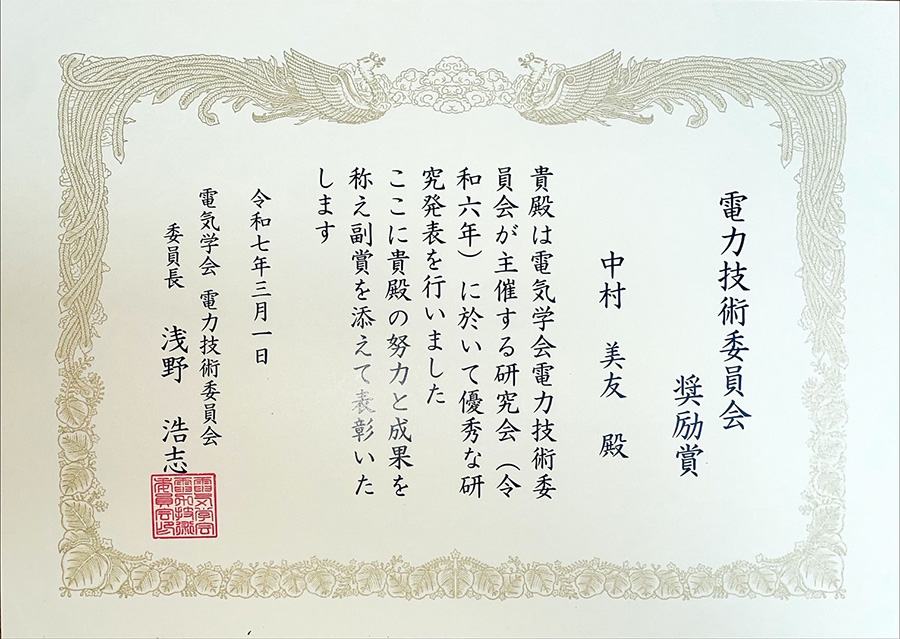 電力技術委員会
奨励賞
中村 美友 殿
貴殿は電気学会電力技術委
員会が主催する研究会（令
和六年）に於いて優秀な研
究発表を行いました
ここに貴殿の努力と成果を
称え副賞を添えて表彰いた
します
令和七年三月一日
電気学会 電力技術委員会
委員長 浅野 浩志
電気学会
電力技術
委員会印